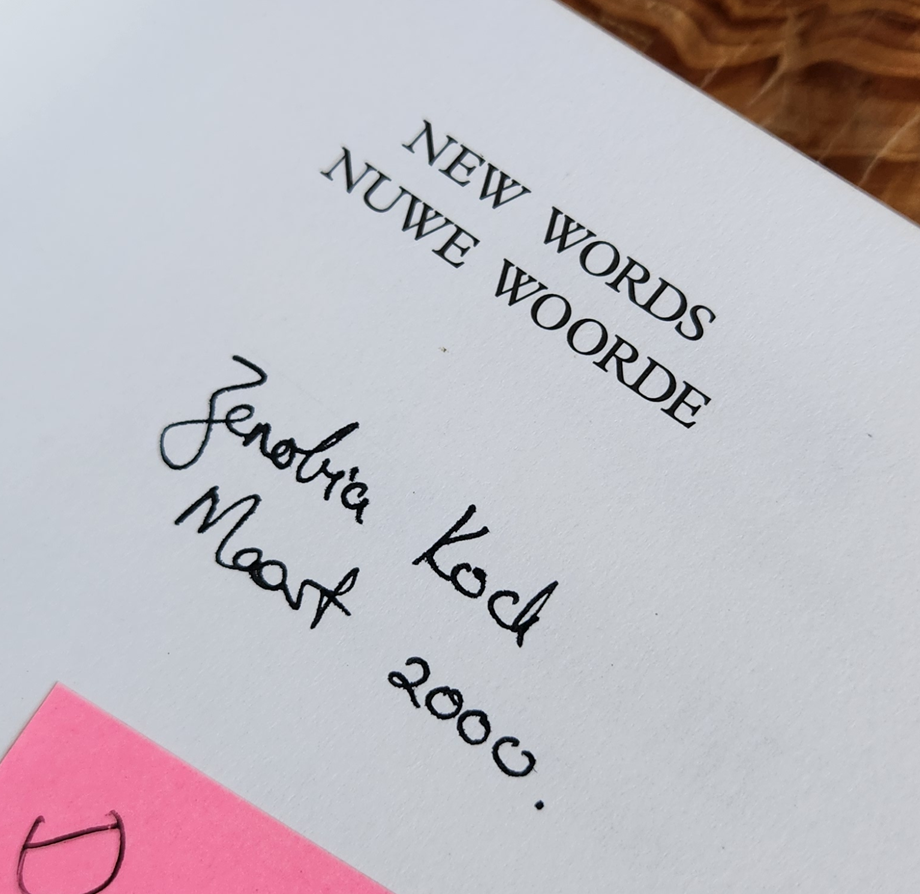 NEW WORDS
NUWE WOORDE
Zenobia Koch
Maart 2000.